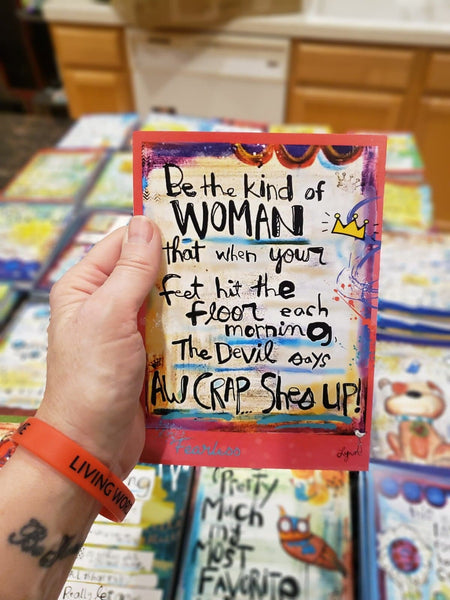 Be the kind of
WOMAN
that when your
feet hit the
floor each
morning,
The Devil says
AW CRAP Shes UP!
Fearless
LIVING WOR
Be
Pretty
Much
MOST
FAVORITE
Really